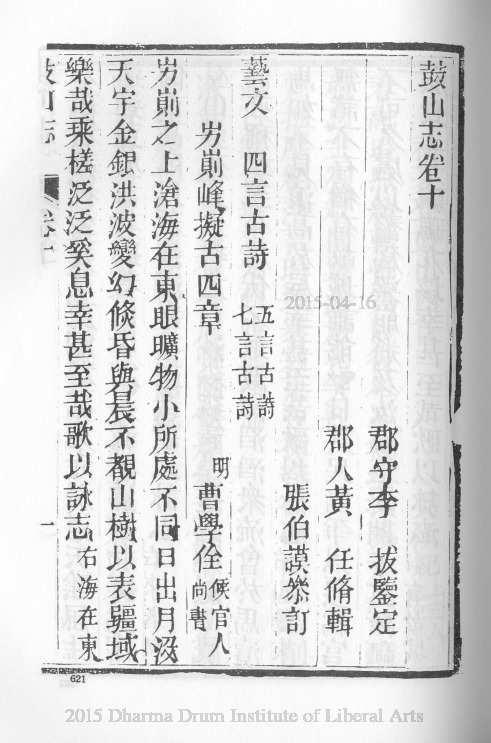 鼓山志卷十
郡守李 㧞鑒定
郡人黃 任脩輯
張伯謨叅訂
藝文 四言古詩 五言古詩 七言古詩
屴崱峰擬古四章 明 曹學佺 候官人 尚書
屴崱之上滄海在東眼曠物小所處不同日出月沒
天宇金銀洪波變幻倐昏與晨不覩山樹以表疆域
樂哉乘槎泛泛奚息幸甚至哉歌以詠志 右海在東
鼓山志 卷十 一
2015-04-16
621
2015 Dharma Drum Institute of Liberal Arts